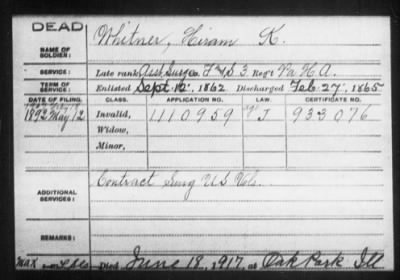 DEAD
NAME OF SOLDIER: Whitner, Hiram K.
SERVICE: Late rank Asst Surg Co. F&S 3. Reg't Pa H A.
TERM OF SERVICE: Enlisted Sept 12, 1862 Discharged Feb 27, 1865
DATE OF FILING. CLASS. APPLICATION NO. LAW. CERTIFICATE NO.
1892 May 12 Invalid, 1110959 J 933076
Widow,
Minor,
ADDITIONAL SERVICES: Contract Surg US Vols.
REMARKS:
Died June 18, 1917, at Oak Park Ill